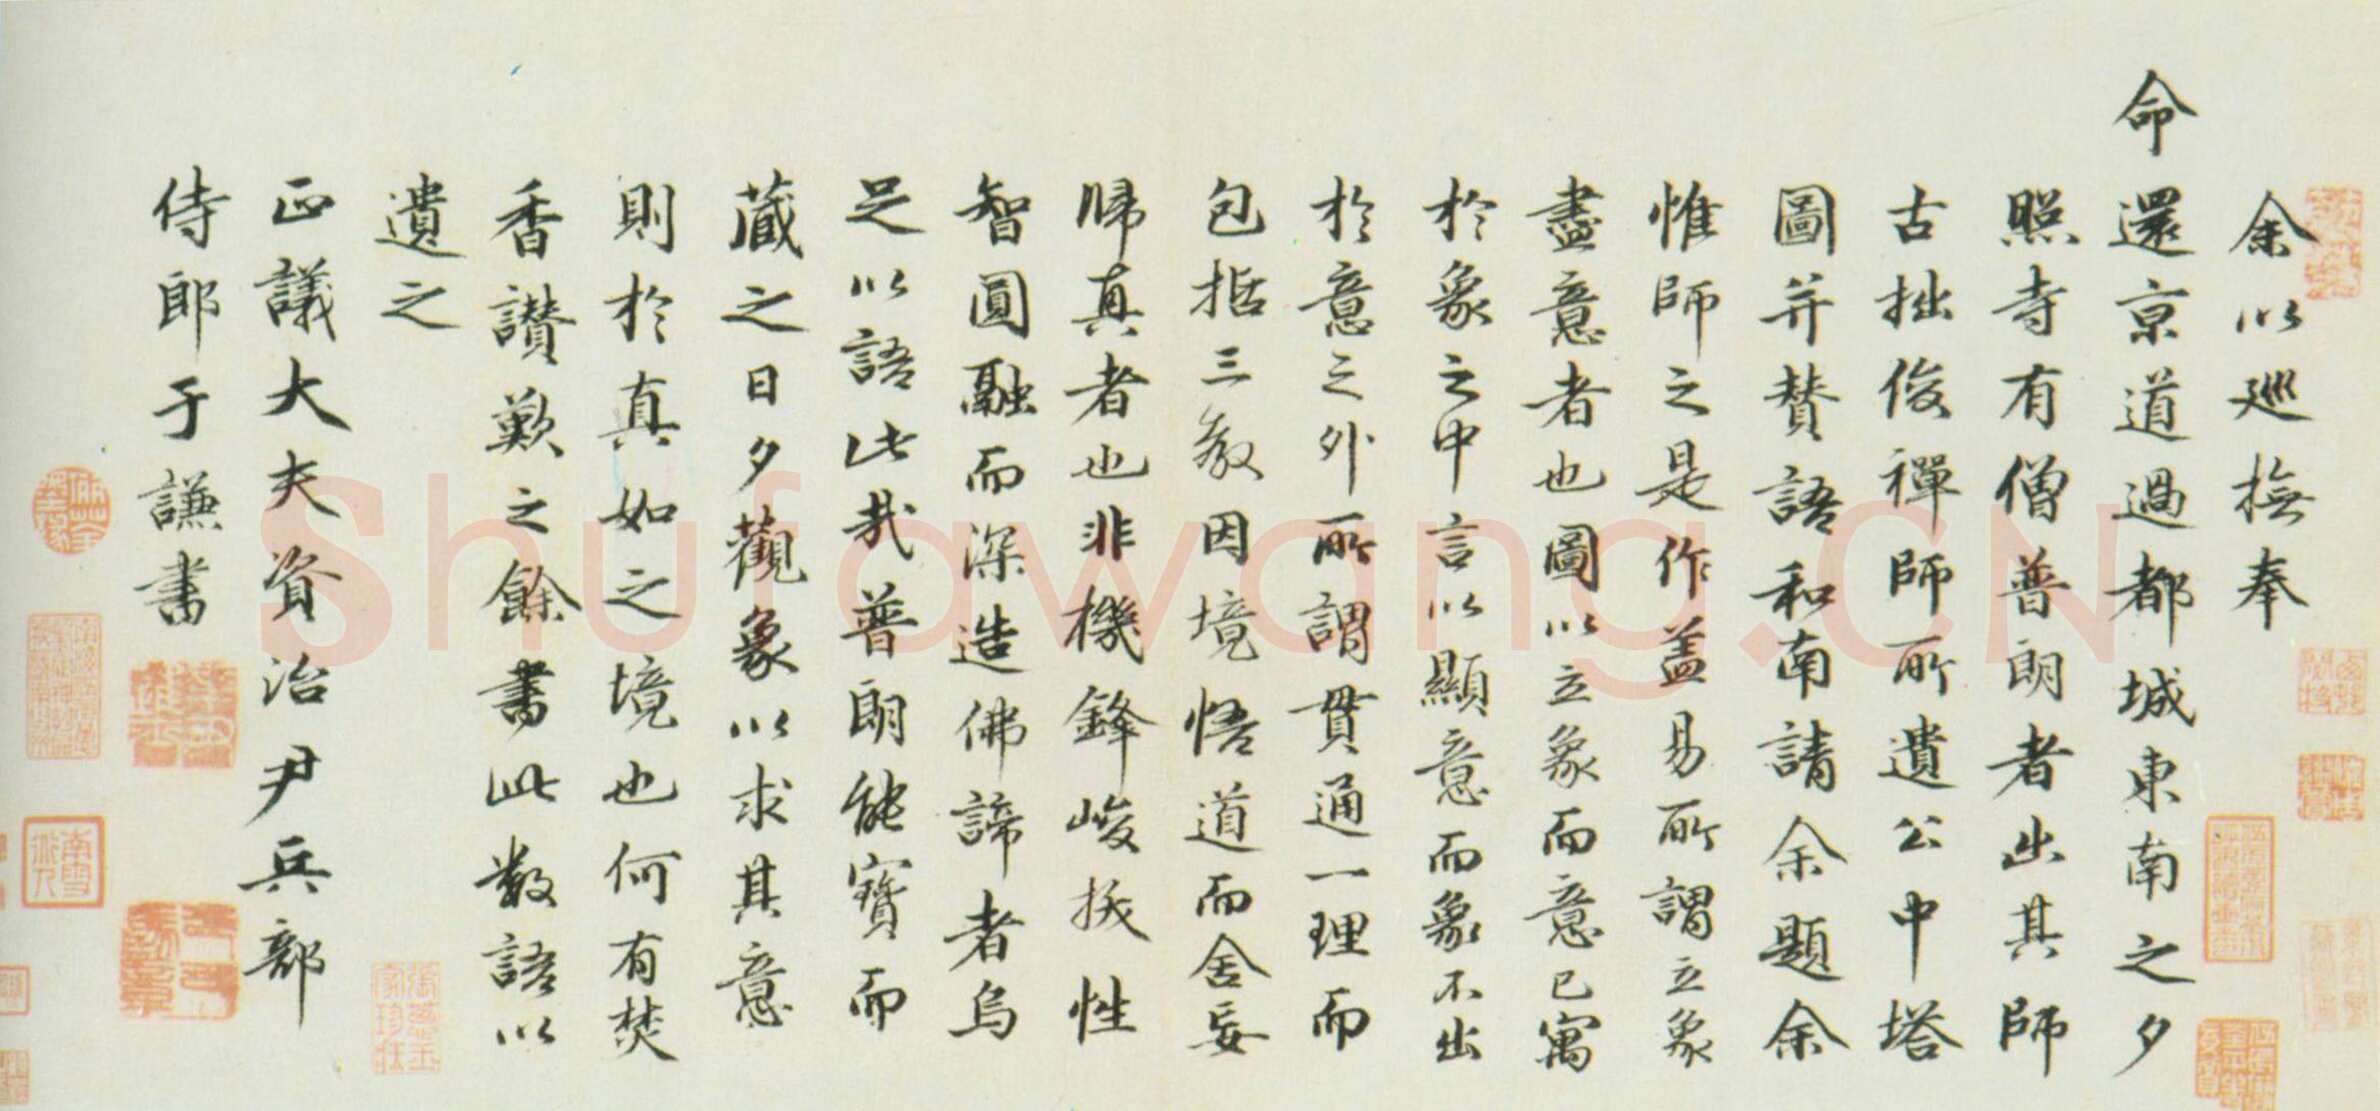 余以巡撫奉
命還京道過都城東南之夕
照寺有僧普朗者出其師
古拙俊禪師所遺公中塔
圖并賛語和南請余題余
惟師之是作盖易所謂立象
盡意者也圖以立象而意已寓
於象之中言以顯意而象不出
於意之外所謂貫通一理而
包括三教因境悟道而舍妄
歸真者也非機鋒峻拔性
智圓融而深造佛諦者烏
足以語此哉普朗能寶而
藏之日夕觀象以求其意
則於真如之境也何有焚
香讃歎之餘書此數語以
遺之
正議大夫資治尹兵部
侍郎于謙書
Shufawang.CN